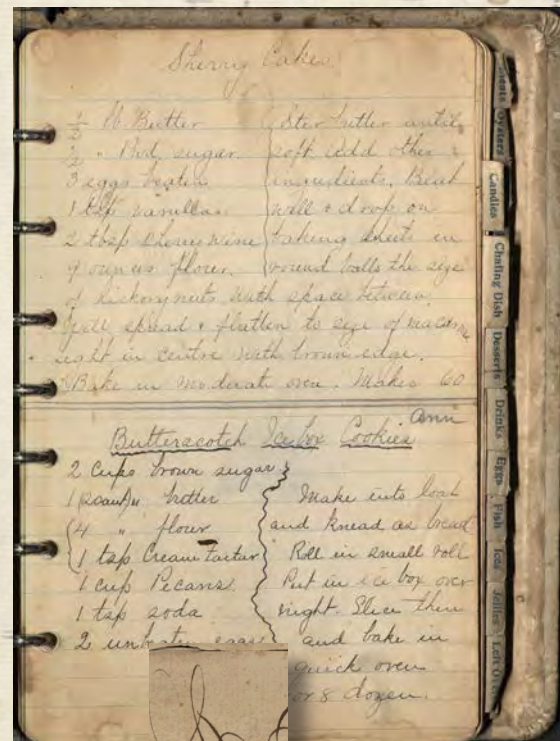 Sherry Cakes
½ lb Butter
½ " Pwd. sugar
3 eggs beaten
1 tsp vanilla
2 tbsp Sherry wine
9 ounces flour.
Stir butter until
soft. Add other
ingredients. Beat
well & drop on
baking sheets in
round balls the size
of hickory nuts with space between.
Will spread & flatten to size of
light in centre with brown edge.
Bake in moderate oven. Makes 60
Ann
Butterscotch Icebox Cookies
2 cups brown sugar
1 (scant) " butter
4 " flour
1 tsp Cream Tartar
1 cup Pecans
1 tsp soda
2 unbeaten eggs
Make into loaf
and knead as bread
Roll in small roll
Put in ice box over
night. Slice thin
and bake in
quick oven
or 8 dozen.
Oysters
Candies
Chafing Dish
Desserts
Drinks
Eggs
Fish
Ices
Jellies
Left Overs